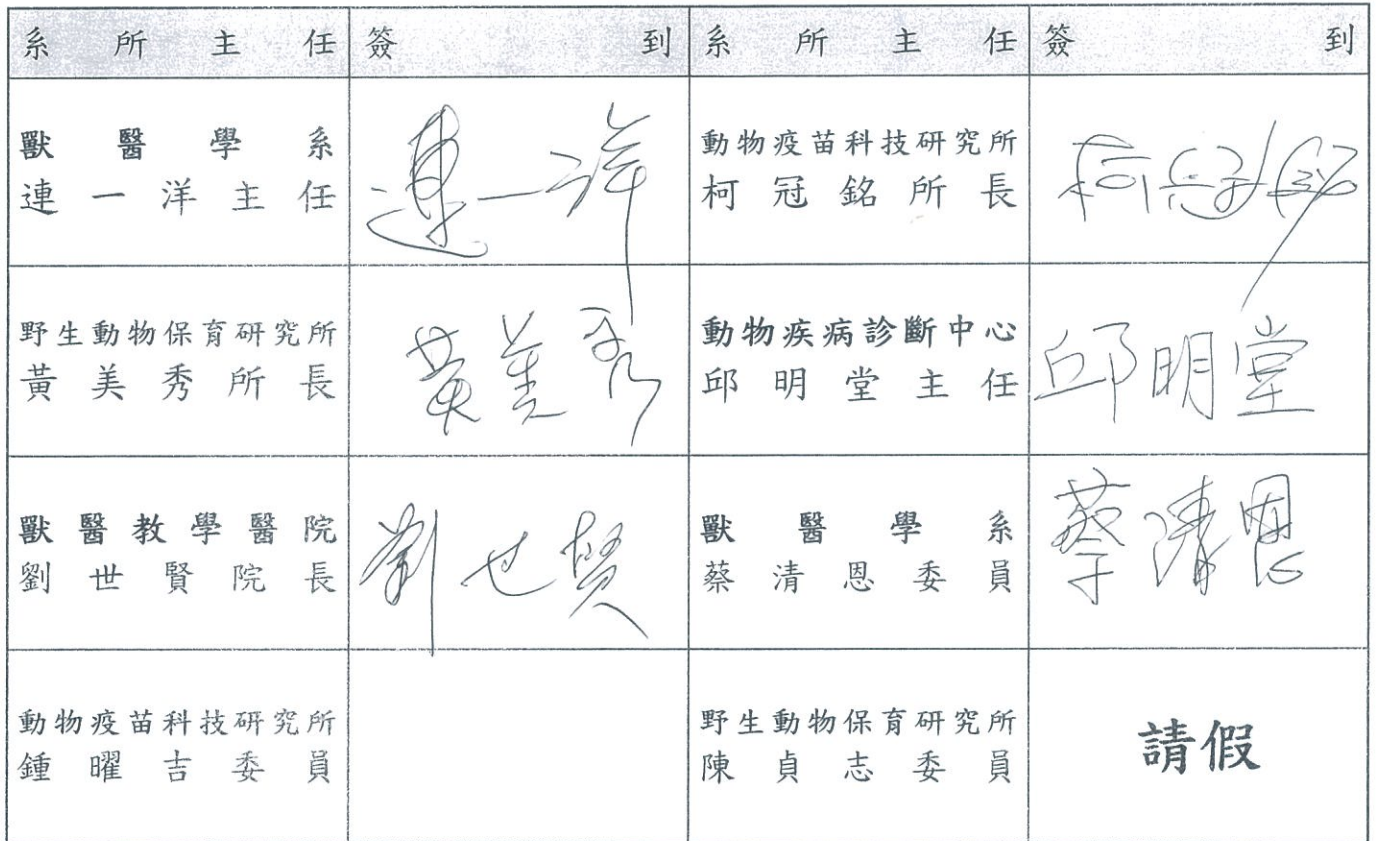 系所主任 簽到 系所主任 簽到
獸醫學系
連一洋主任
連一洋
動物疫苗科技研究所
柯冠銘所長
柯冠銘
野生動物保育研究所
黃美秀所長
黃美秀
動物疾病診斷中心
邱明堂主任
邱明堂
獸醫教學醫院
劉世賢院長
劉世賢
獸醫學系
蔡清恩委員
蔡清恩
動物疫苗科技研究所
鍾曜吉委員
野生動物保育研究所
陳貞志委員
請假